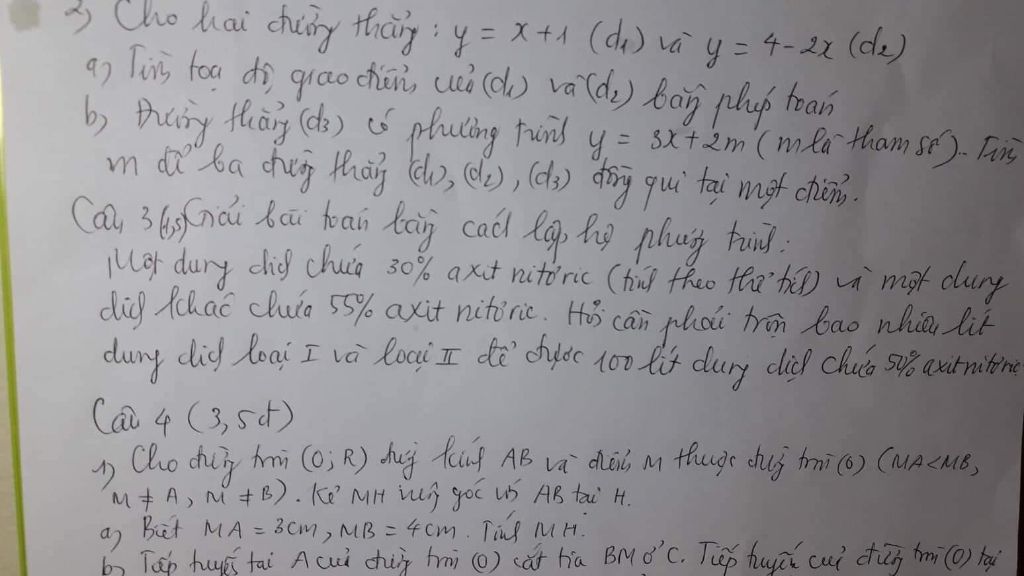 2) Cho hai đường thẳng: y = x+1 (d1) và y = 4-2x (d2)
a) Tìm toạ độ giao điểm của (d1) và (d2) bằng phép toán
b) Đường thẳng (d3) có phương trình y = 3x+2m (m là tham số). Tìm
m để ba đường thẳng (d1), (d2), (d3) đồng qui tại một điểm.
Câu 3 (1,5) Giải bài toán bằng cách lập hệ phương trình:
Một dung dịch chứa 30% axit nitơric (tính theo thể tích) và một dung
dịch khác chứa 55% axit nitơric. Hỏi cần phải trộn bao nhiêu lít
dung dịch loại I và loại II để được 100 lít dung dịch chứa 50% axit nitơric
Câu 4 (3,5đ)
1) Cho đường tròn (O; R) đường kính AB và điểm M thuộc đường tròn (O) (MA<MB,
M ≠ A, M ≠ B). Kẻ MH vuông góc với AB tại H.
a) Biết MA = 3cm, MB = 4cm. Tính MH.
b) Tiếp tuyến tại A của đường tròn (O) cắt tia BM ở C. Tiếp tuyến của đường tròn (O) tại